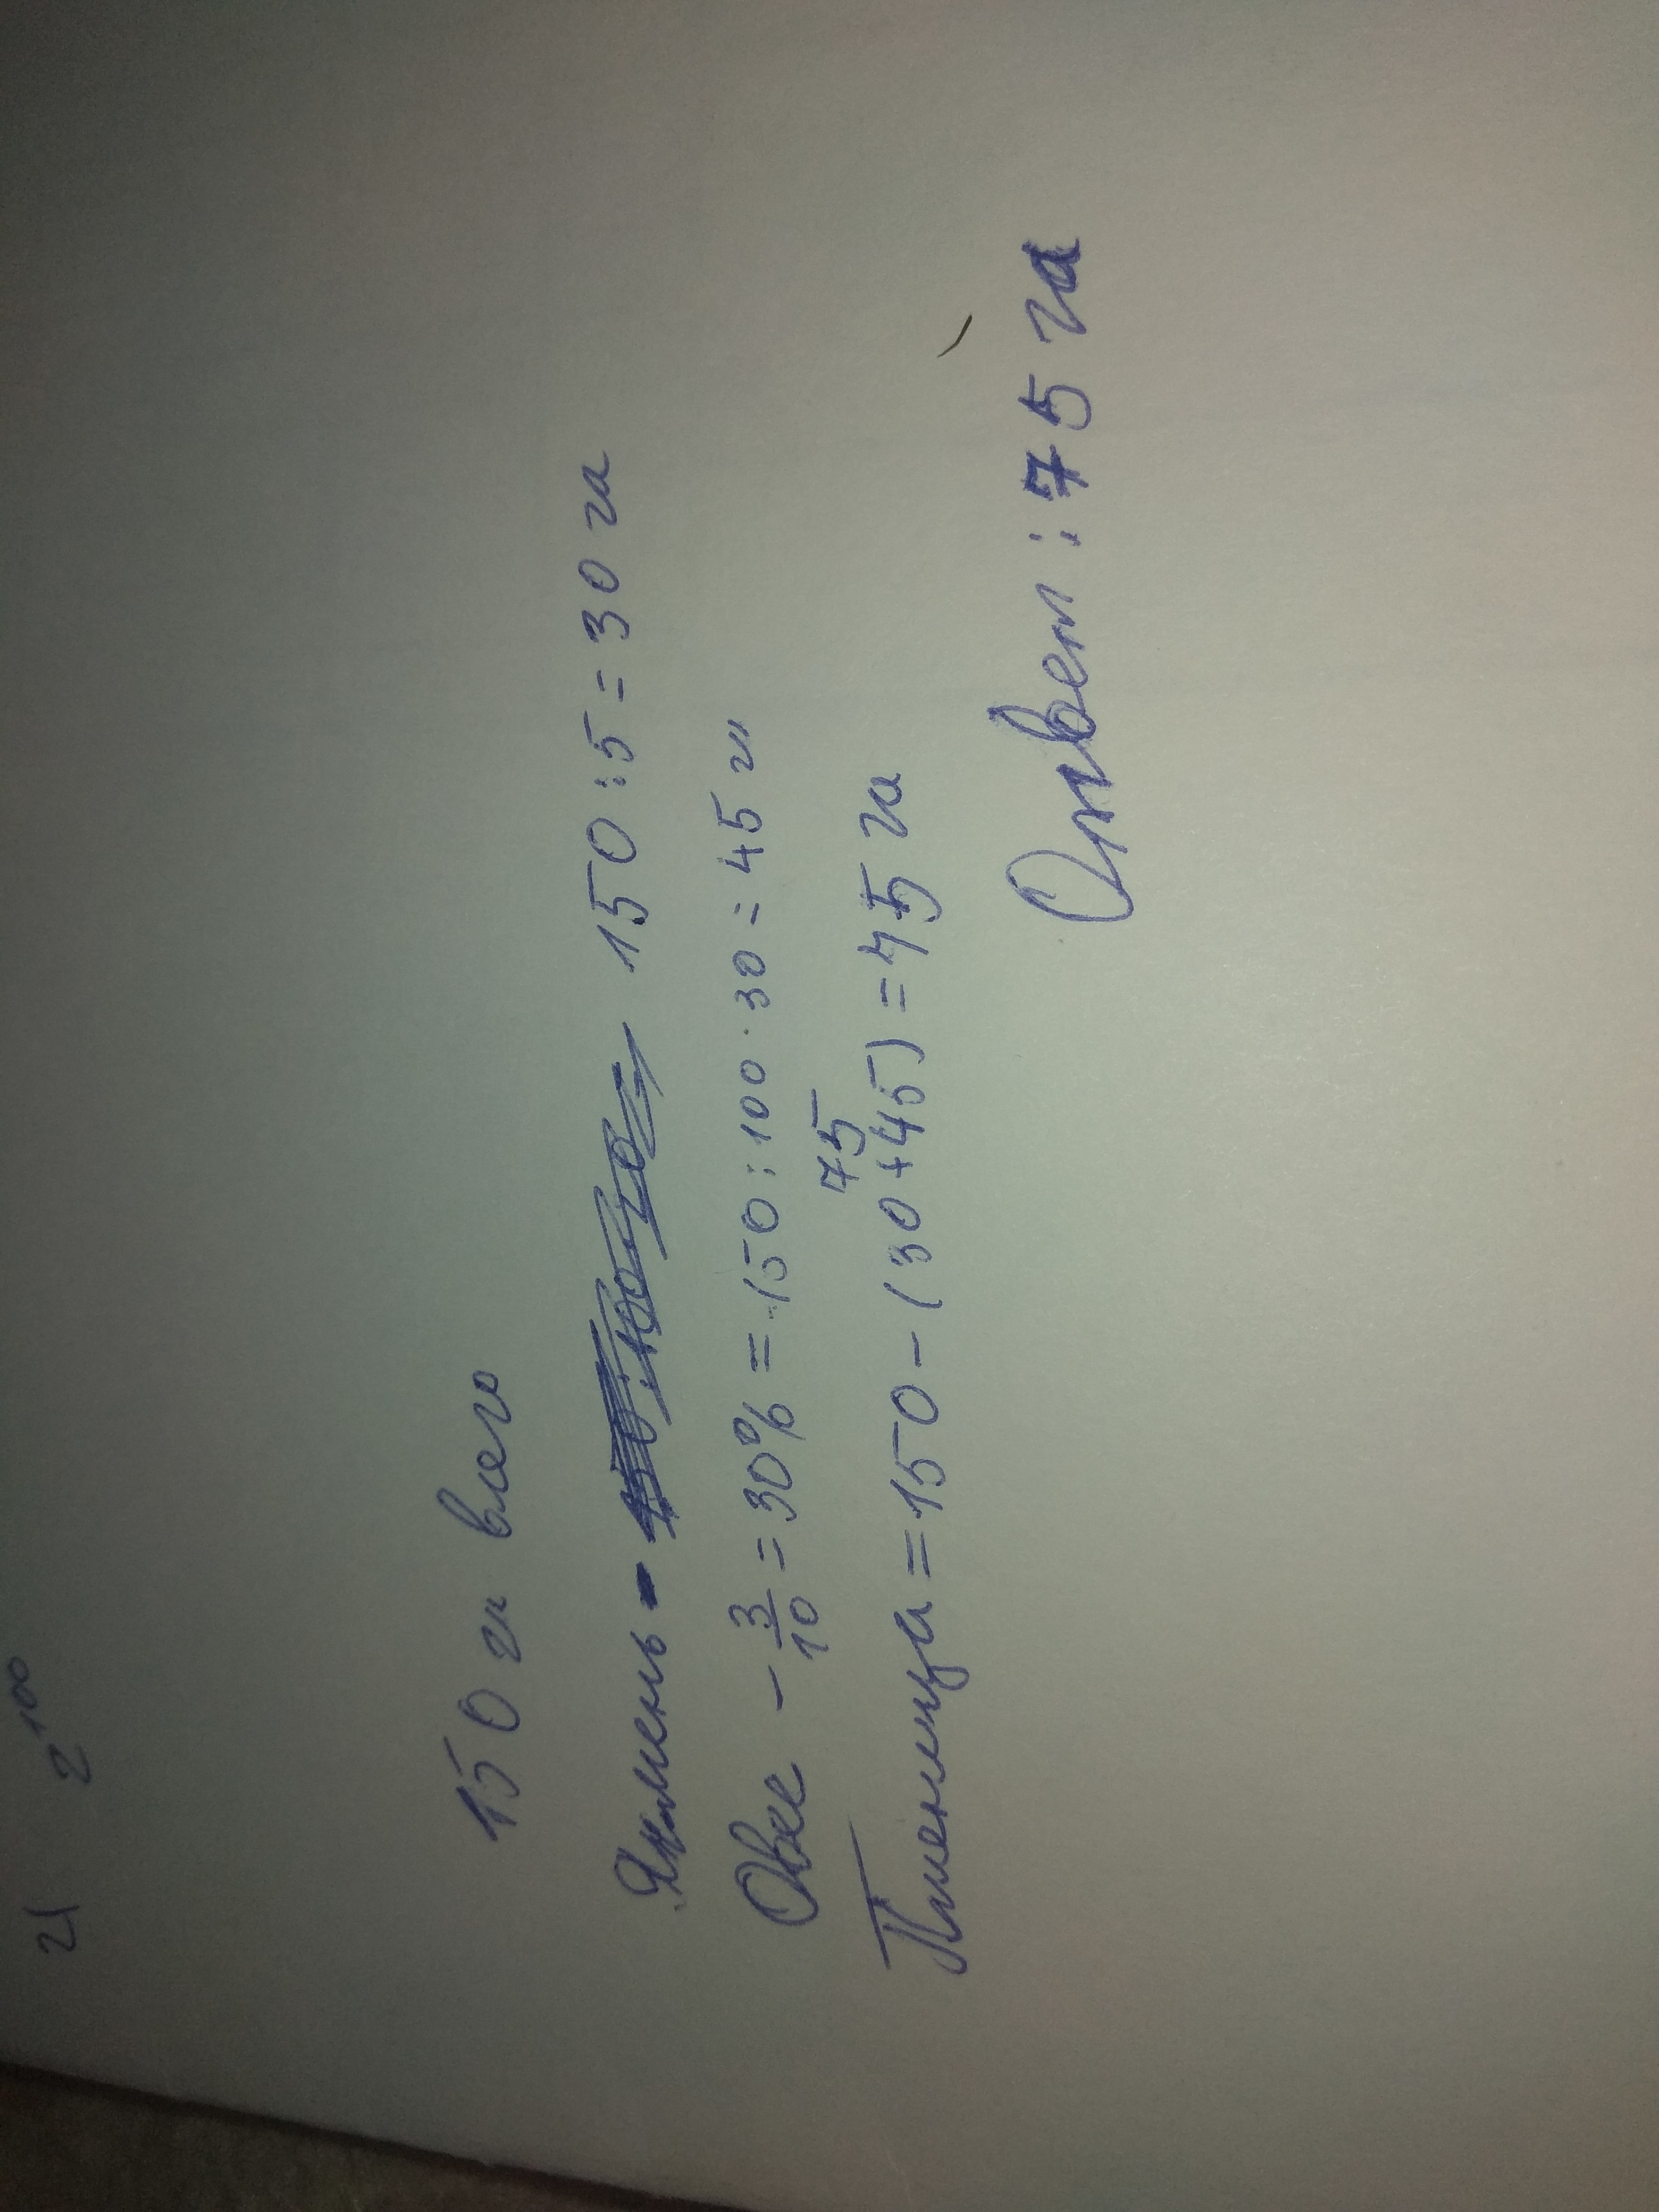 21 2¹⁰⁰
150 га всего
Ячмень - 150 : 5 = 30 га
Овес - 3/10 = 30% = 150 : 100 · 30 = 45 га
75
Пшеница = 150 - (30 + 45) = 75 га
Ответ : 75 га